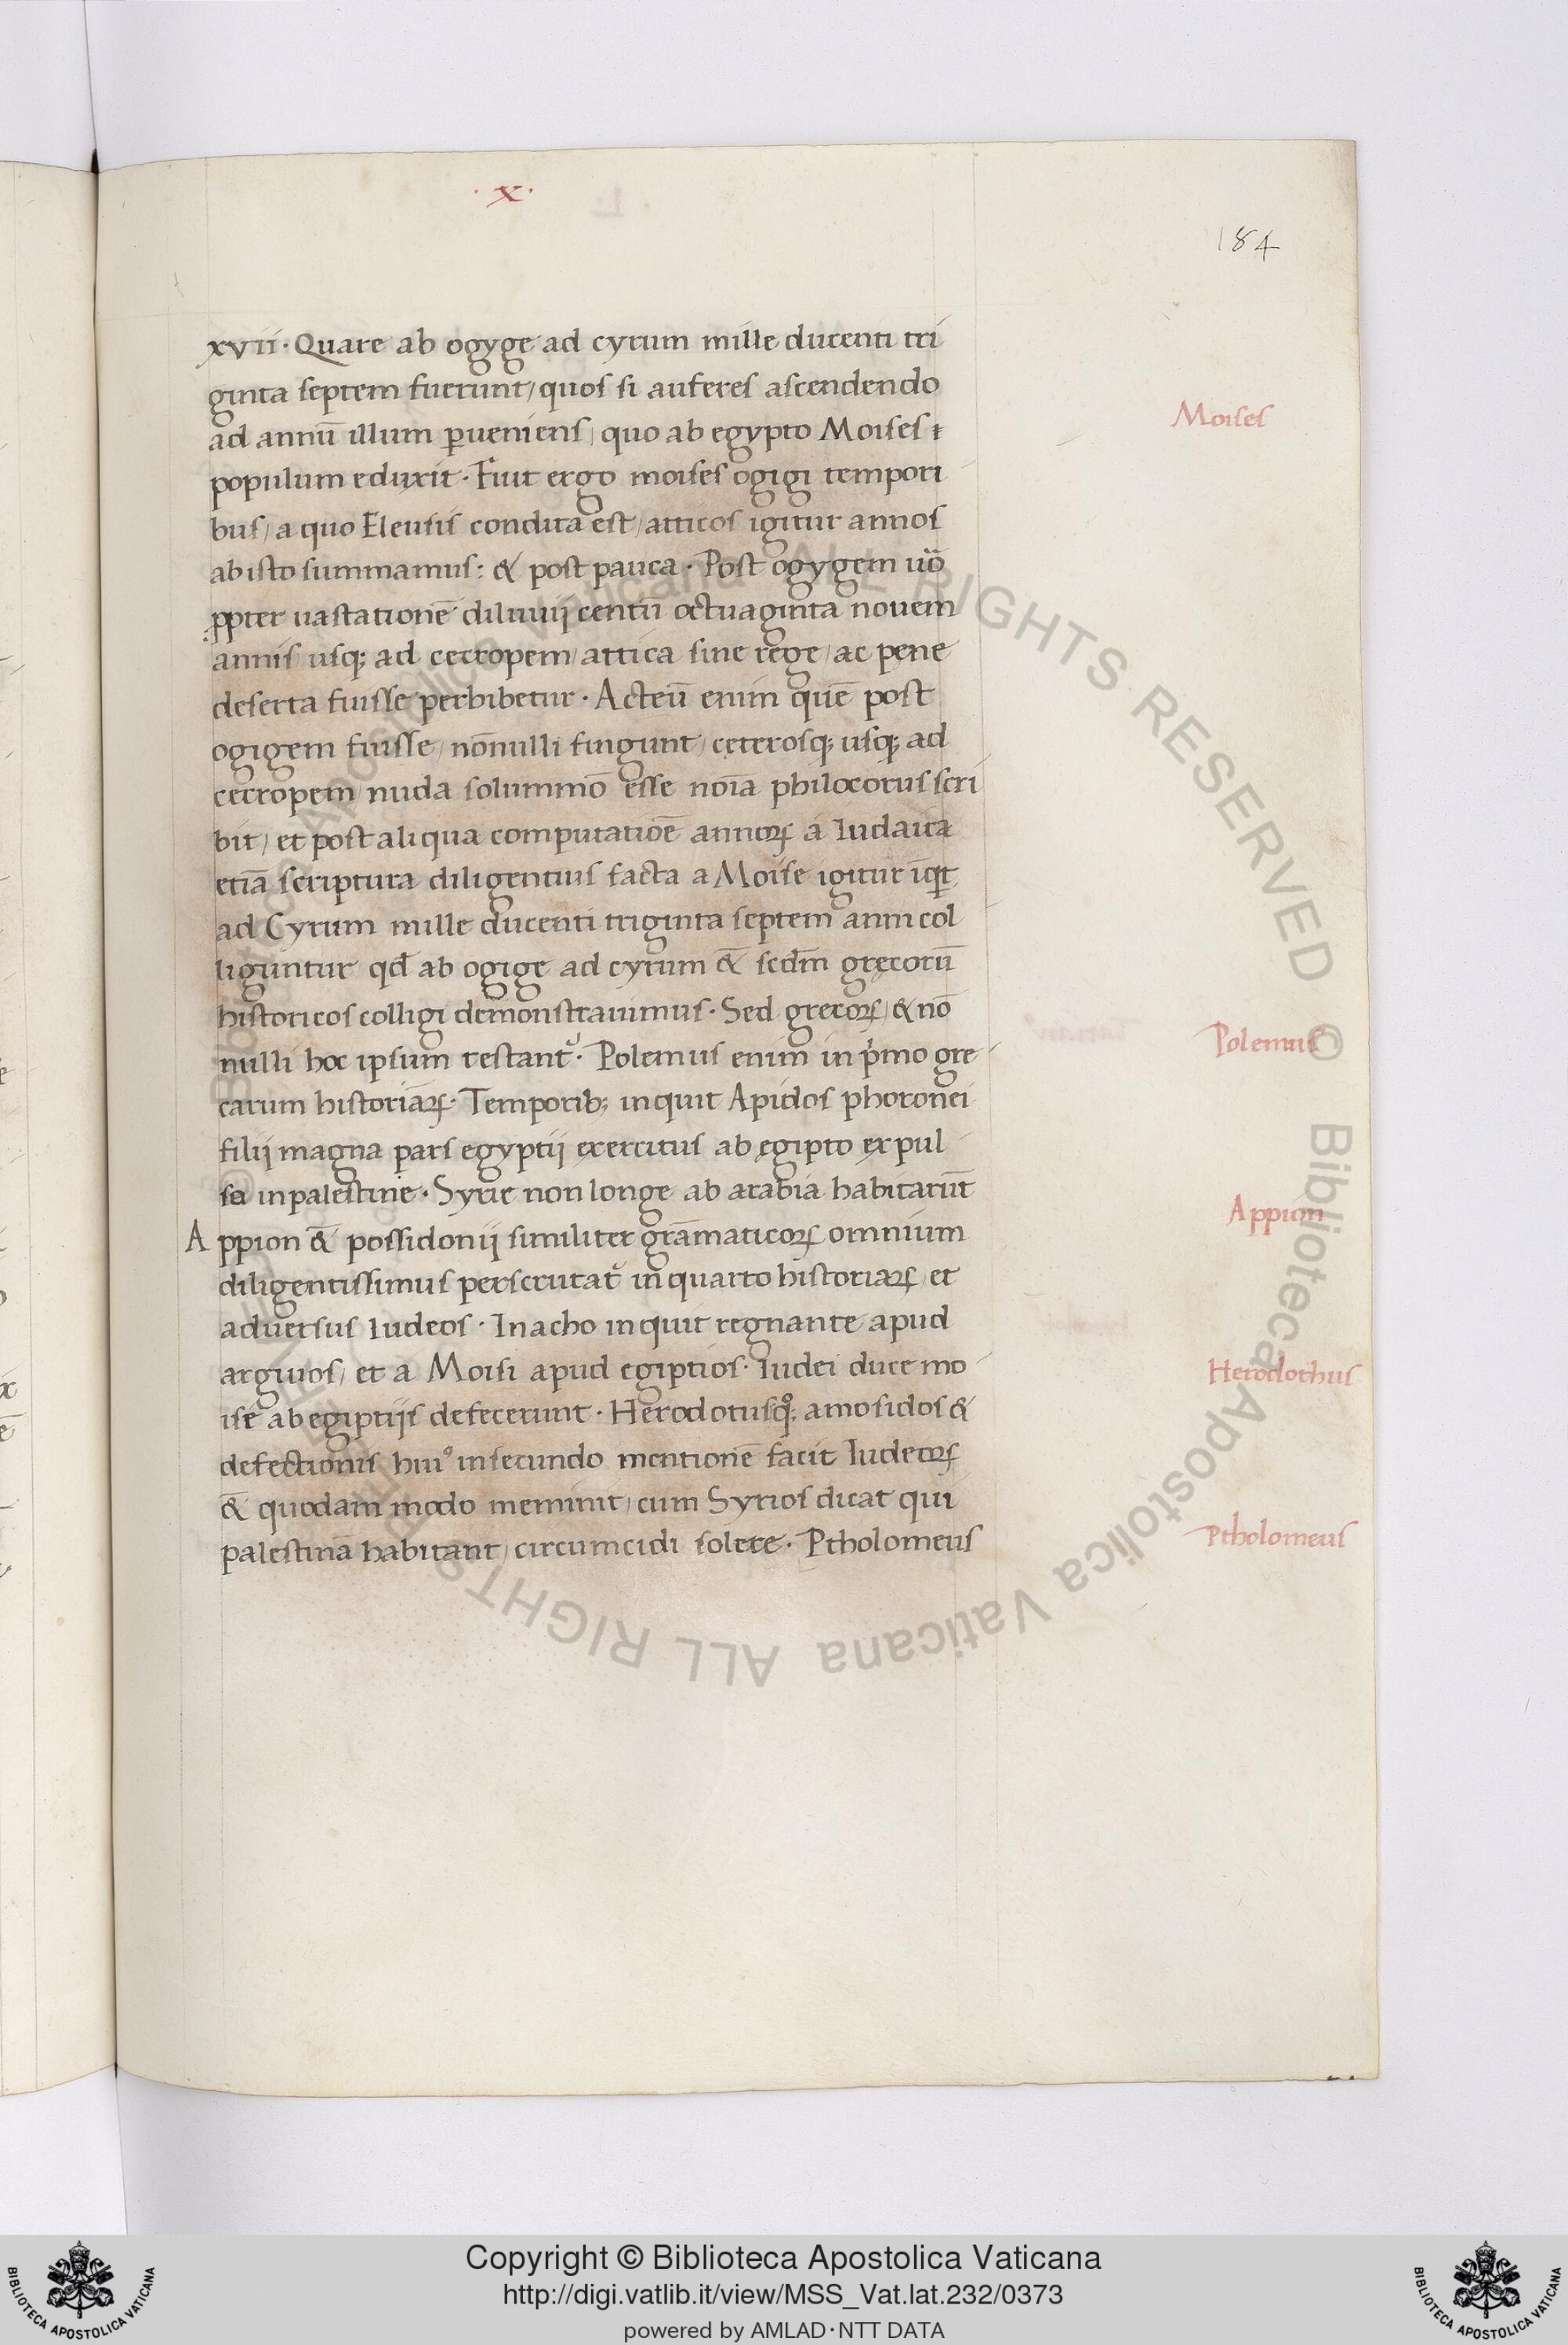 · x ·
184
xvii · Quare ab ogyge ad cyrum mille ducenti tri
ginta septem fuerunt / quos si auferes ascendendo
ad annū illum ꝑueniens / quo ab egypto Moises
Moises
populum eduxit · Fuit ergo moises ogigi tempori
bus / a quo Eleusis condita est / atticos igitur annos
ab isto summamus : & post pauca · Post ogygem uō
ꝓpter uastationē diluuij centū octuaginta nouem
annis usq; ad cecropem / attica sine rege / ac pene
deserta fuisse perhibetur · Acteū enim quē post
ogigem fuisse / nōnulli fingunt / cęterosq; usq; ad
cecropem / nuda solummō esse noīa philocorus scri
bit / et post aliqua computatiōē annoꝝ a Iudaica
etiā scriptura diligentius facta a Moise igitur
ad Cyrum mille ducenti triginta septem anni col
liguntur qđ ab ogige ad cyrum & scđm gręcorū
historicos colligi demonstrauimus · Sed grecoꝝ / & nō
nulli hoc ipsum testant᷑ · Polemus enim in p̾mo gre
Polemus
carum historiaꝝ · Temporib; inquit Apidos phoronei
filij magna pars egyptij exercitus ab ęgipto expul
sa in palestine · Syrie non longe ab arabia habitarūt
Appion & possidonij similiter grāmaticoꝝ omnium
Appion
diligentissimus perscrutat᷑ in quarto historiaꝝ / et
aduersus Iudeos · Inacho inquit regnante apud
argiuos / et a Moisi apud egiptios · Iudei duce mo
Herodothus
ise ab egiptijs defecerunt · Herodotusq̊; amosidos &
defectionis hui᷒ in secundo mentionē facit Iudeoꝝ
& quodam modo meminit / cum Syrios dicat qui
palestinā habitant / circumcidi solere · Ptholomeus
Ptholomeus
© Biblioteca Apostolica Vaticana ALL RIGHTS RESERVED
Copyright © Biblioteca Apostolica Vaticana
http://digi.vatlib.it/view/MSS_Vat.lat.232/0373
powered by AMLAD·NTT DATA
BIBLIOTECA APOSTOLICA VATICANA
BIBLIOTECA APOSTOLICA VATICANA